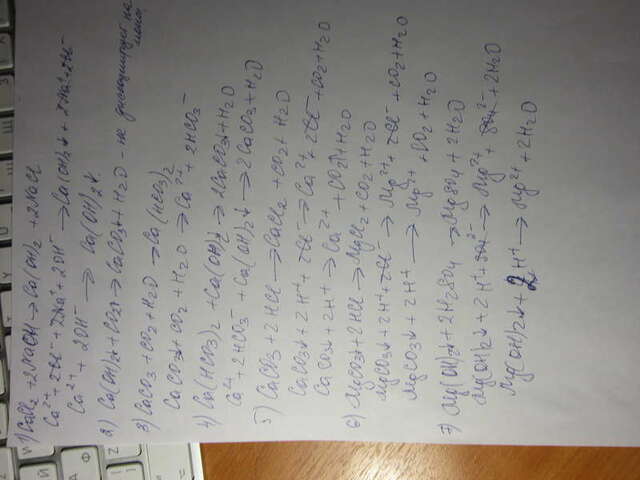 1) CaCl2 + 2NaOH → Ca(OH)2 + 2NaCl
Ca²⁺ + 2Cl⁻ + 2Na⁺ + 2OH⁻ → Ca(OH)2↓ + 2Na⁺ + 2Cl⁻
Ca²⁺ + 2OH⁻ → Ca(OH)2↓
2) Ca(OH)2↓ + CO2 → CaCO3↓ + H2O - не диссоциирует на ионы
3) CaCO3 + CO2 + H2O → Ca(HCO3)2
CaCO3↓ + CO2 + H2O → Ca²⁺ + 2HCO3⁻
4) Ca(HCO3)2 + Ca(OH)2 → 2CaCO3 + H2O
Ca²⁺ + 2HCO3⁻ + Ca(OH)2↓ → 2CaCO3 + H2O
5) CaCO3 + 2HCl → CaCl2 + CO2 + H2O
CaCO3↓ + 2H⁺ + 2Cl⁻ → Ca²⁺ + 2Cl⁻ + CO2 + H2O
CaCO3↓ + 2H⁺ → Ca²⁺ + CO2 + H2O
6) MgCO3 + 2HCl → MgCl2 + CO2 + H2O
MgCO3↓ + 2H⁺ + 2Cl⁻ → Mg²⁺ + 2Cl⁻ + CO2 + H2O
MgCO3↓ + 2H⁺ → Mg²⁺ + CO2 + H2O
7) Mg(OH)2 + 2H2SO4 → MgSO4 + 2H2O
Mg(OH)2↓ + 2H⁺ + SO4²⁻ → Mg²⁺ + SO4²⁻ + 2H2O
Mg(OH)2↓ + 2H⁺ → Mg²⁺ + 2H2O